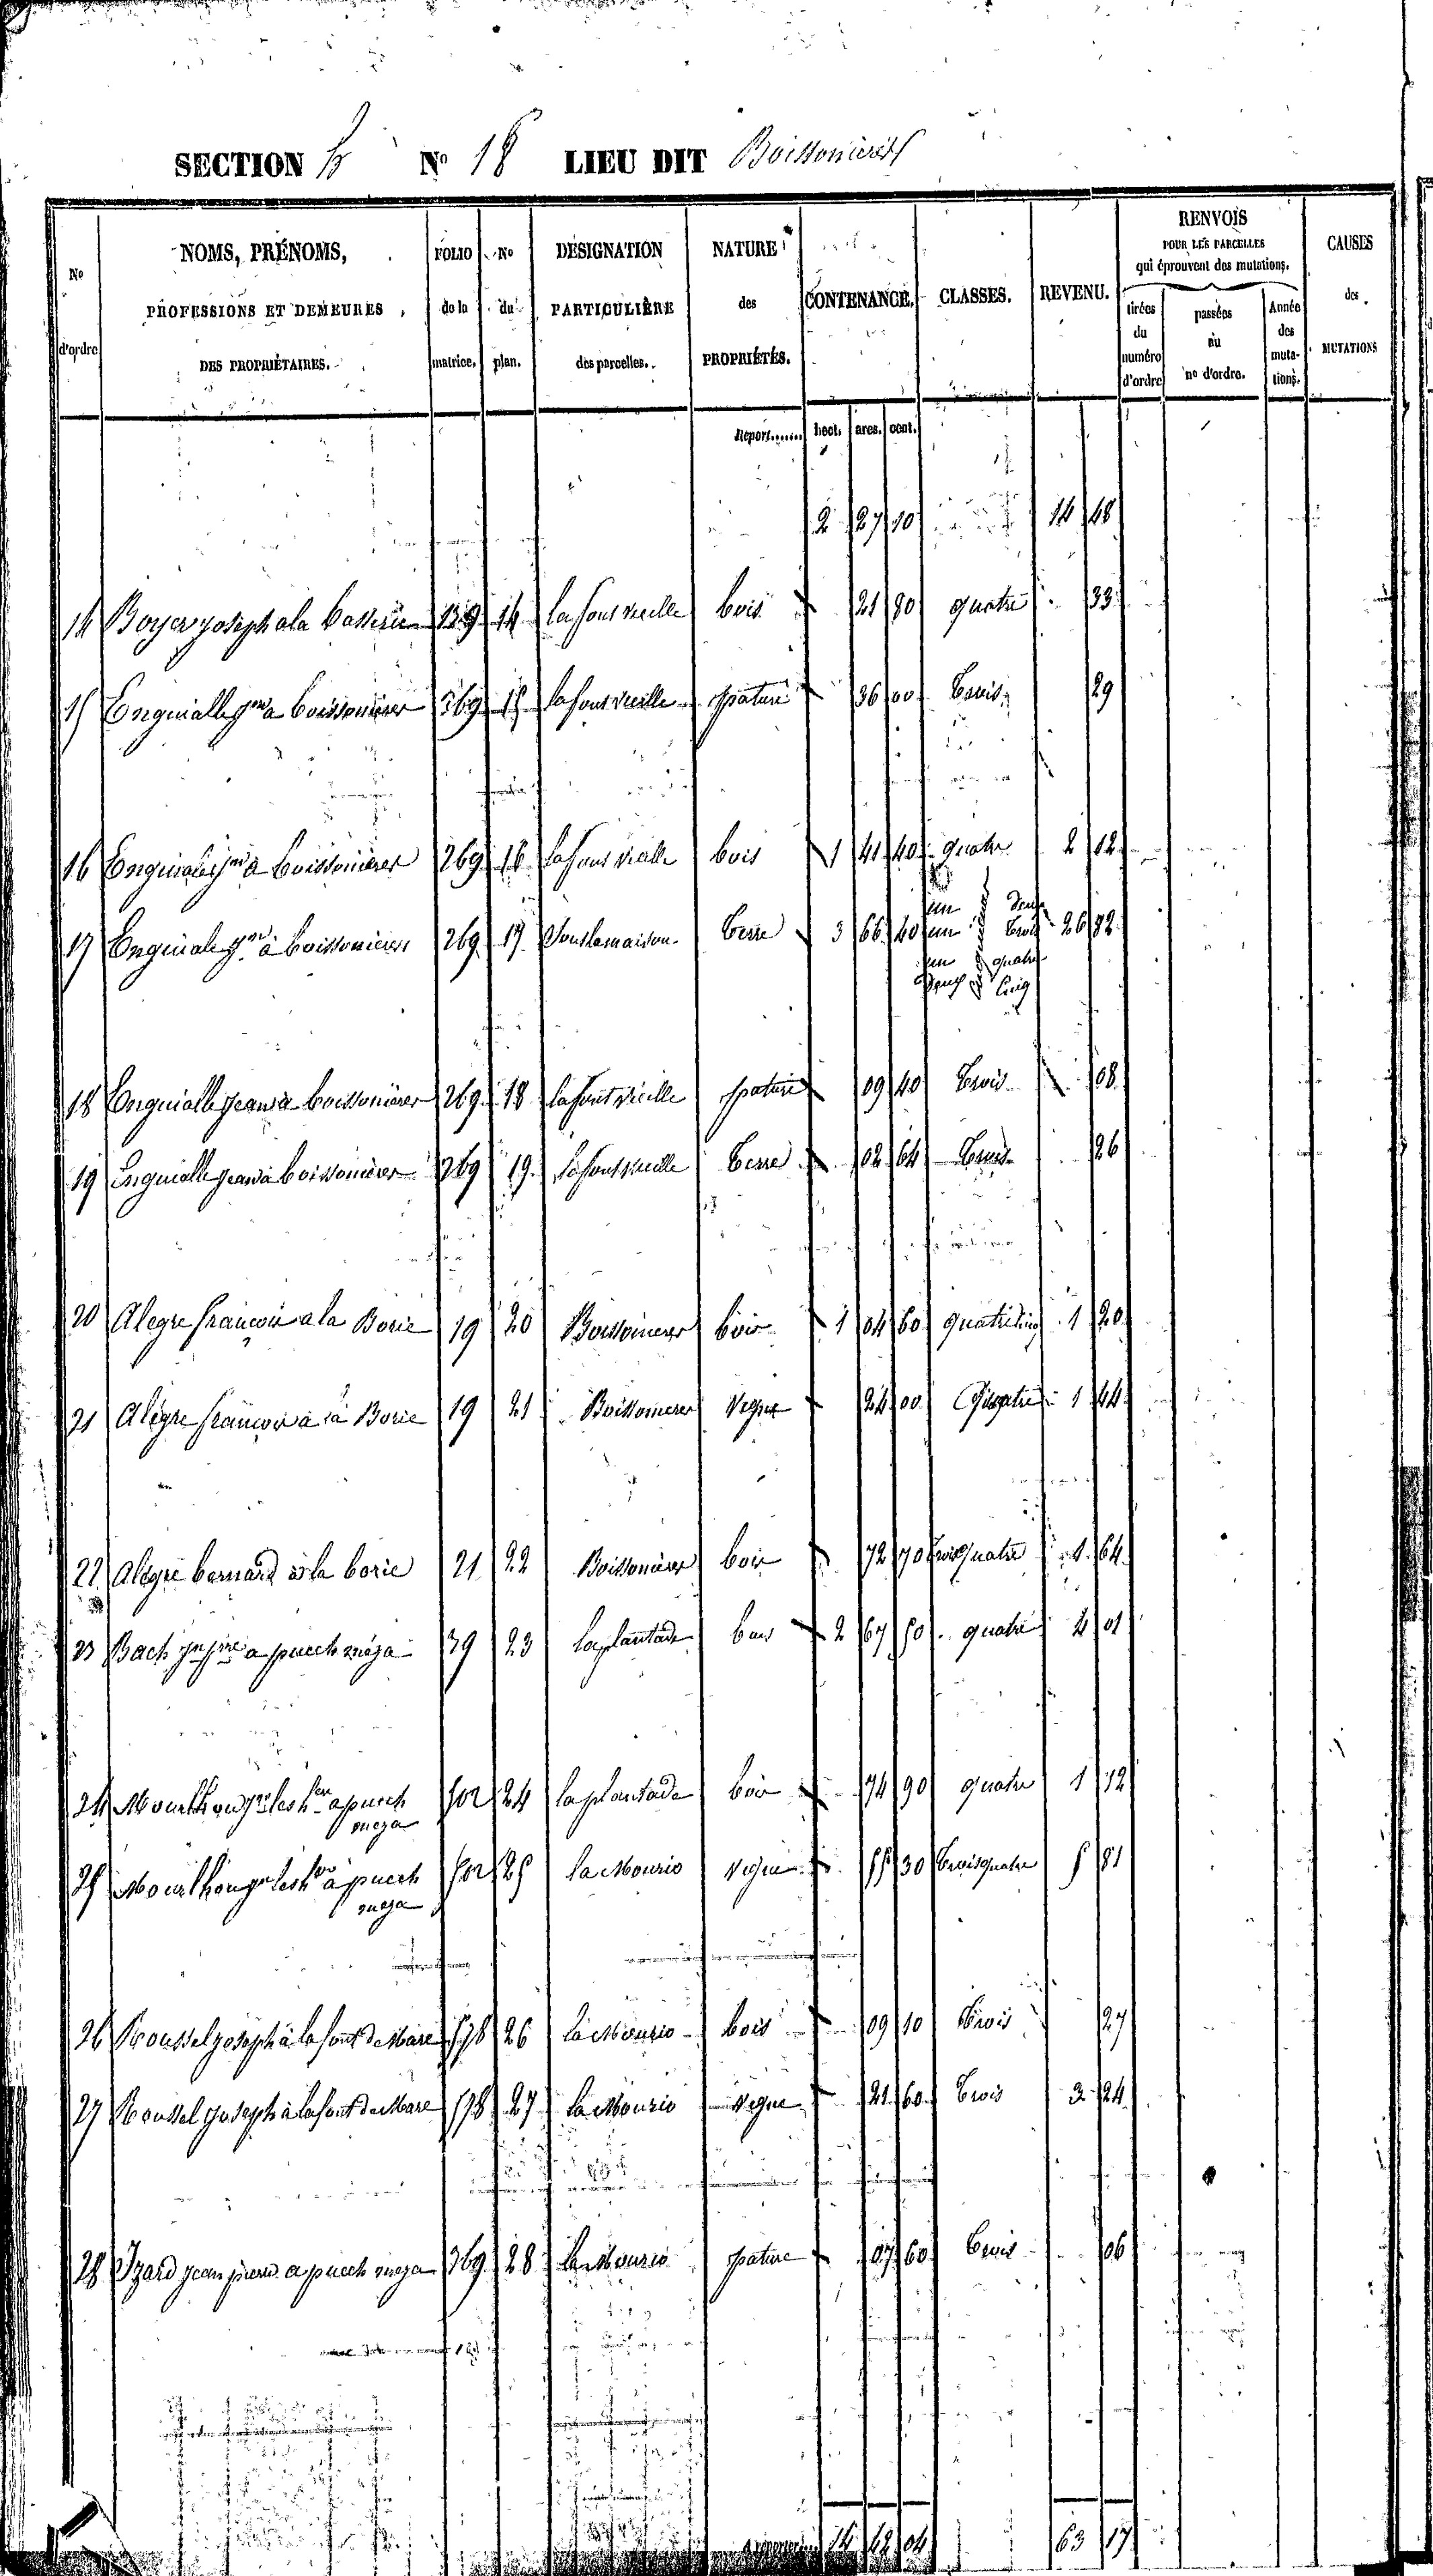 SECTION h No 18 LIEU DIT Boissonieres
No d'ordre
NOMS, PRÉNOMS, PROFESSIONS ET DEMEURES DES PROPRIÉTAIRES.
FOLIO de la matrice.
No du plan.
DÉSIGNATION PARTICULIÈRE des parcelles.
NATURE des PROPRIÉTÉS.
CONTENANCE.
CLASSES.
REVENU.
RENVOIS POUR LES PARCELLES qui éprouvent des mutations.
tirées du numéro d'ordre
passées au no d'ordre.
Année des mutations.
CAUSES des MUTATIONS
Report...... hect. ares. cent.
2 27 10 14 48
14 Boyer joseph a la 139 14 lafont vieille bois 21 80 quatre 33
15 Enguialle a boissonieres 269 15 lafont vieille pature 36 00 trois 29
16 Enguiale a boissonieres 269 16 lafont vieille bois 1 41 40 quatre 2 12
17 Enguiale à boissonieres 269 17 Souslamaison terre 3 66 40 un deux 26 82
un trois
un quatre
deux cinq
18 Enguialle jean a boissonieres 269 18 lafont vieille pature 09 40 trois 08
19 Enguialle jean a boissonieres 269 19 lafont vieille terre 02 64 trois 26
20 Alegre francois a la Borie 19 20 Boissonieres bois 1 04 60 quatre cinq 1 20
21 Alegre francois a la Borie 19 21 Boissonieres vigne 24 00 quatre 1 44
22 Alegre bernard à la borie 21 22 Boissonieres bois 72 70 trois quatre 1 64
23 Bach a puech méja 39 23 laplantade bois 2 67 50 quatre 4 01
24 Mourlhou les her a puech meja 502 24 laplantade bois 74 90 quatre 1 12
25 Mourlhou les her à puech meja 502 25 la Mourio vigne 55 30 trois quatre 5 81
26 Roussel joseph à lafont de Mare 578 26 la Mourio bois 09 10 trois 27
27 Roussel joseph à lafont de Mare 578 27 la Mourio vigne 21 60 trois 3 24
28 Izard jean pierre a puech meja 369 28 la Mourio pature 07 60 trois 06
A reporter 14 62 04 63 17